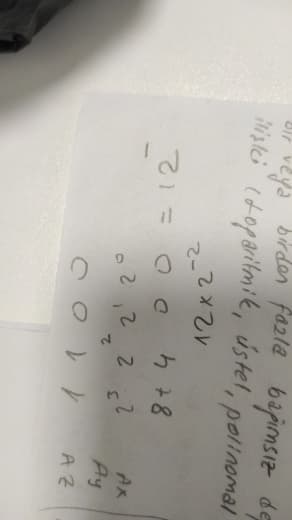 bir veya birden fazla bağımsız de
ilişki (logaritmik, üstel, polinomal
1 1 0 0
2³ 2² 2¹ 2⁰
8 + 4 0 0 = 12
12 x 2⁻²
Ax
Ay
Az